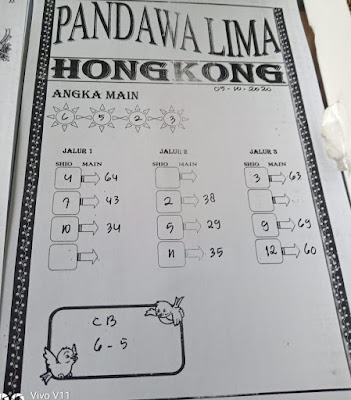 PANDAWA LIMA
HONGKONG
05-10-2020
ANGKA MAIN
6 5 2 3
JALUR 1 JALUR 2 JALUR 3
SHIO MAIN SHIO MAIN SHIO MAIN
4 64 3 63
7 43 2 38
10 34 5 29 9 69
11 35 12 60
CB
6-5
Vivo V11